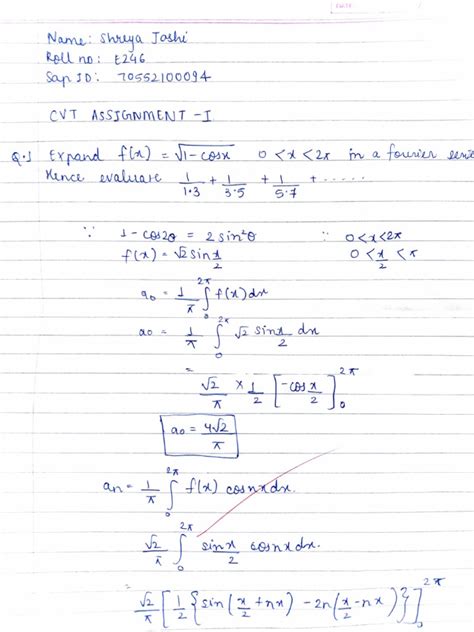 Name: Shreya Joshi
Roll no: E246
Sap ID: 70552100094
CVT ASSIGNMENT - I
Q.1 Expand f(x) = √1-cosx 0 < x < 2π in a fourier serie
Hence evaluate 1/1.3 + 1/3.5 + 1/5.7 + ......
∵ 1 - cos2θ = 2 sin²θ ∵ 0<x<2π
f(x) = √2 sin x/2 0 < x/2 < π
a₀ = 1/π ∫₀^2π f(x) dx
a₀ = 1/π ∫₀^2π √2 sin x/2 dx
= √2/π × 1/2 [-cos x/2]₀^2π
a₀ = 4√2/π
an = 1/π ∫₀^2π f(x) cosnx dx.
√2/π ∫₀^2π sin x/2 cosnx dx.
= √2/π [1/2 {sin(x/2 + nx) - 2n(x/2 - nx)}]₀^2π